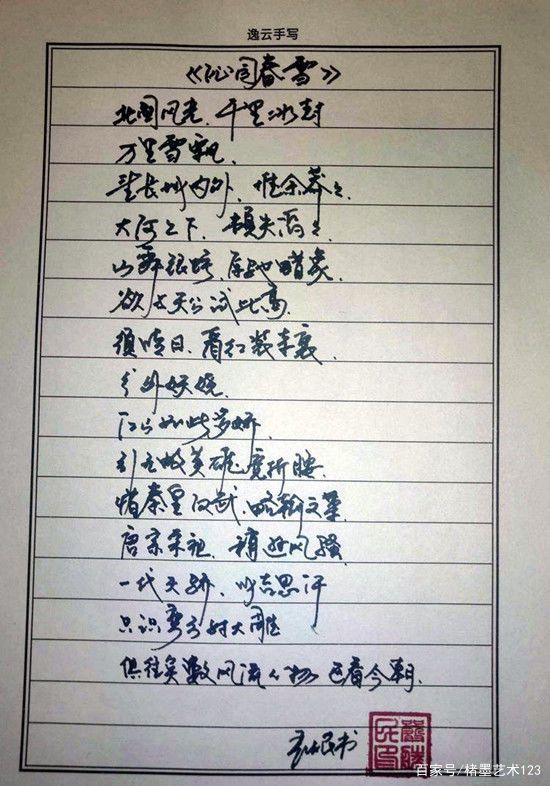 逸云手写
《沁园春雪》
北国风光、千里冰封
万里雪飘、
望长城内外、惟余莽々
大河上下、顿失滔々
山舞银蛇、原驰蜡象
欲与天公试比高
须晴日、看红装素裹、
分外妖娆、
江山如此多娇、
引无数英雄竞折腰
惜秦皇汉武、略输文采
唐宗宋祖、稍逊风骚
一代天骄、成吉思汗
只识弯弓射大雕
俱往矣数风流人物 还看今朝.
书
百家号/楮墨艺术123